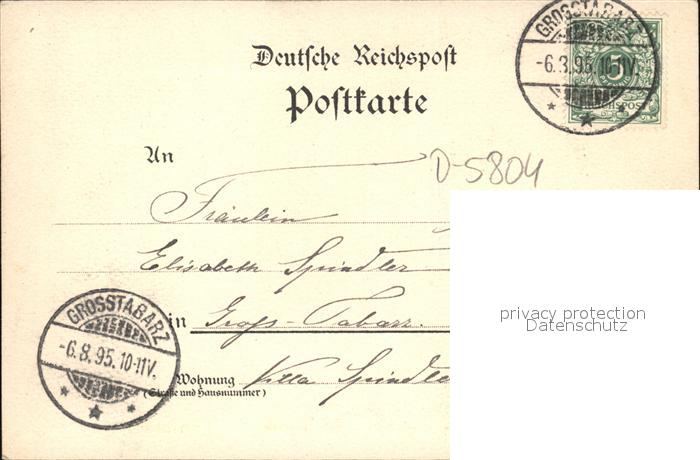 GROSSTABARZ
-6.3.95.10-11V.
5
REICHSPOST
Deutsche Reichspost
Postkarte
An
D-5804
Fräulein
Elisabeth Spindler
in Gross-Tabarz.
GROSSTABARZ
-6.8.95.10-11V.
Wohnung Villa Spindler
(Straße und Hausnummer)
privacy protection
Datenschutz